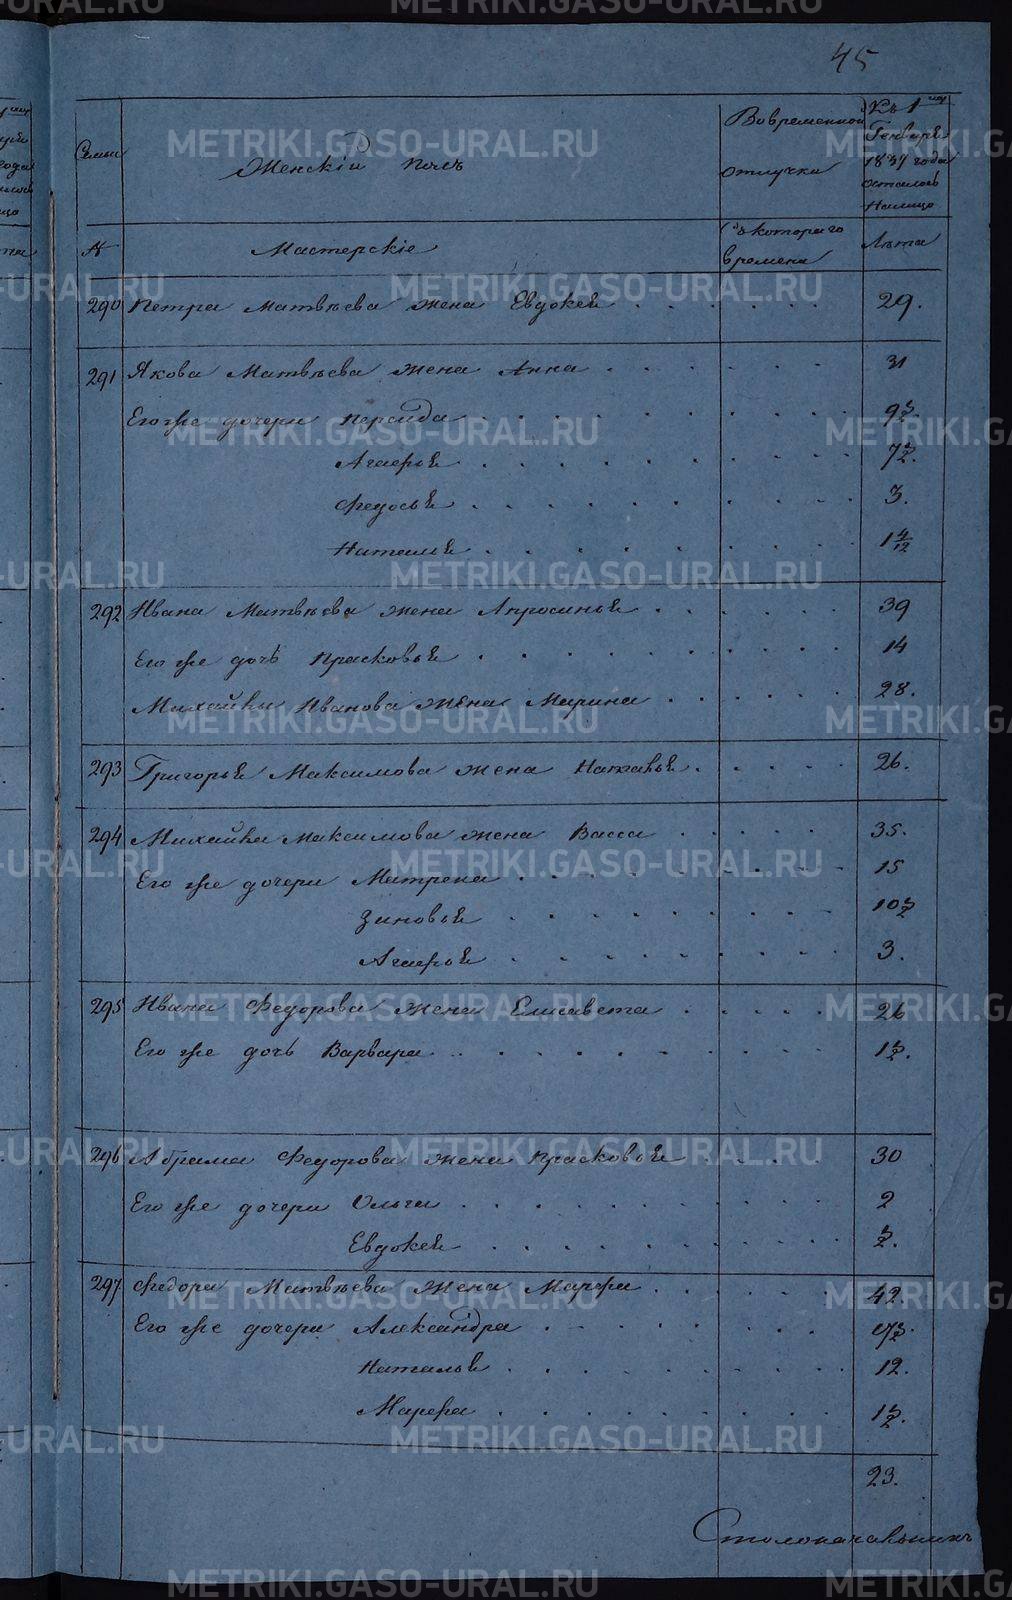 45
Семьи
Женскій полъ
Во временной отлучке
Къ 1му Генваря 1834 года осталось на лицо
№
Мастерскіе
Съ котораго времени
Лѣта
290 Петра Матвѣева жена Евдокея 29.
291 Якова Матвѣева жена Анна 31
Его же дочери Персида 9½.
Агаерья 7½.
Федосья 3.
Наталья 1 4/12
292 Ивана Матвѣева жена Апросинья 39
Его же дочь Прасковья 14
Михайлы Иванова жена Марина 28.
293 Григорья Максимова жена Наталья 26.
294 Михайла Максимова жена Васса 35.
Его же дочери Матрена 15
Зиновья 10½
Агаерья 3.
295 Ивана Федорова жена Елисавета 26
Его же дочь Варвара 1½.
296 Абрама Федорова жена Прасковья 30
Его же дочери Ольга 2
Евдокея ½.
297 Федора Матвѣева жена Марфа 42.
Его же дочери Александра
Наталья 12.
Марфа 1½.
23.
Столоначальникъ
METRIKI.GASO-URAL.RU